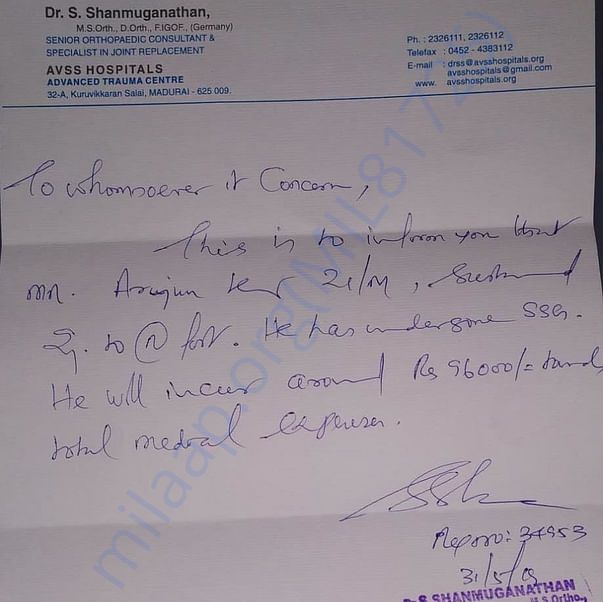 Dr. S. Shanmuganathan,
M.S.Orth., D.Orth., F.IGOF., (Germany)
SENIOR ORTHOPAEDIC CONSULTANT &
SPECIALIST IN JOINT REPLACEMENT
AVSS HOSPITALS
ADVANCED TRAUMA CENTRE
32-A, Kuruvikkaran Salai, MADURAI - 625 009.
Ph. : 2326111, 2326112
Telefax : 0452 - 4383112
E-mail : drss@avsshospitals.org
avsshospitals@gmail.com
www. avsshospitals.org
To whomsoever it Concern,
This is to inform you that
mr. 21/M, Sustained
to (R) foot. He has undergone SSG.
He will incur around Rs 96000/= towards
total medical expenses.
Reg no: 34953
31/5/19
Dr S SHANMUGANATHAN
M S Ortho.,
milaap.org(MIL8172